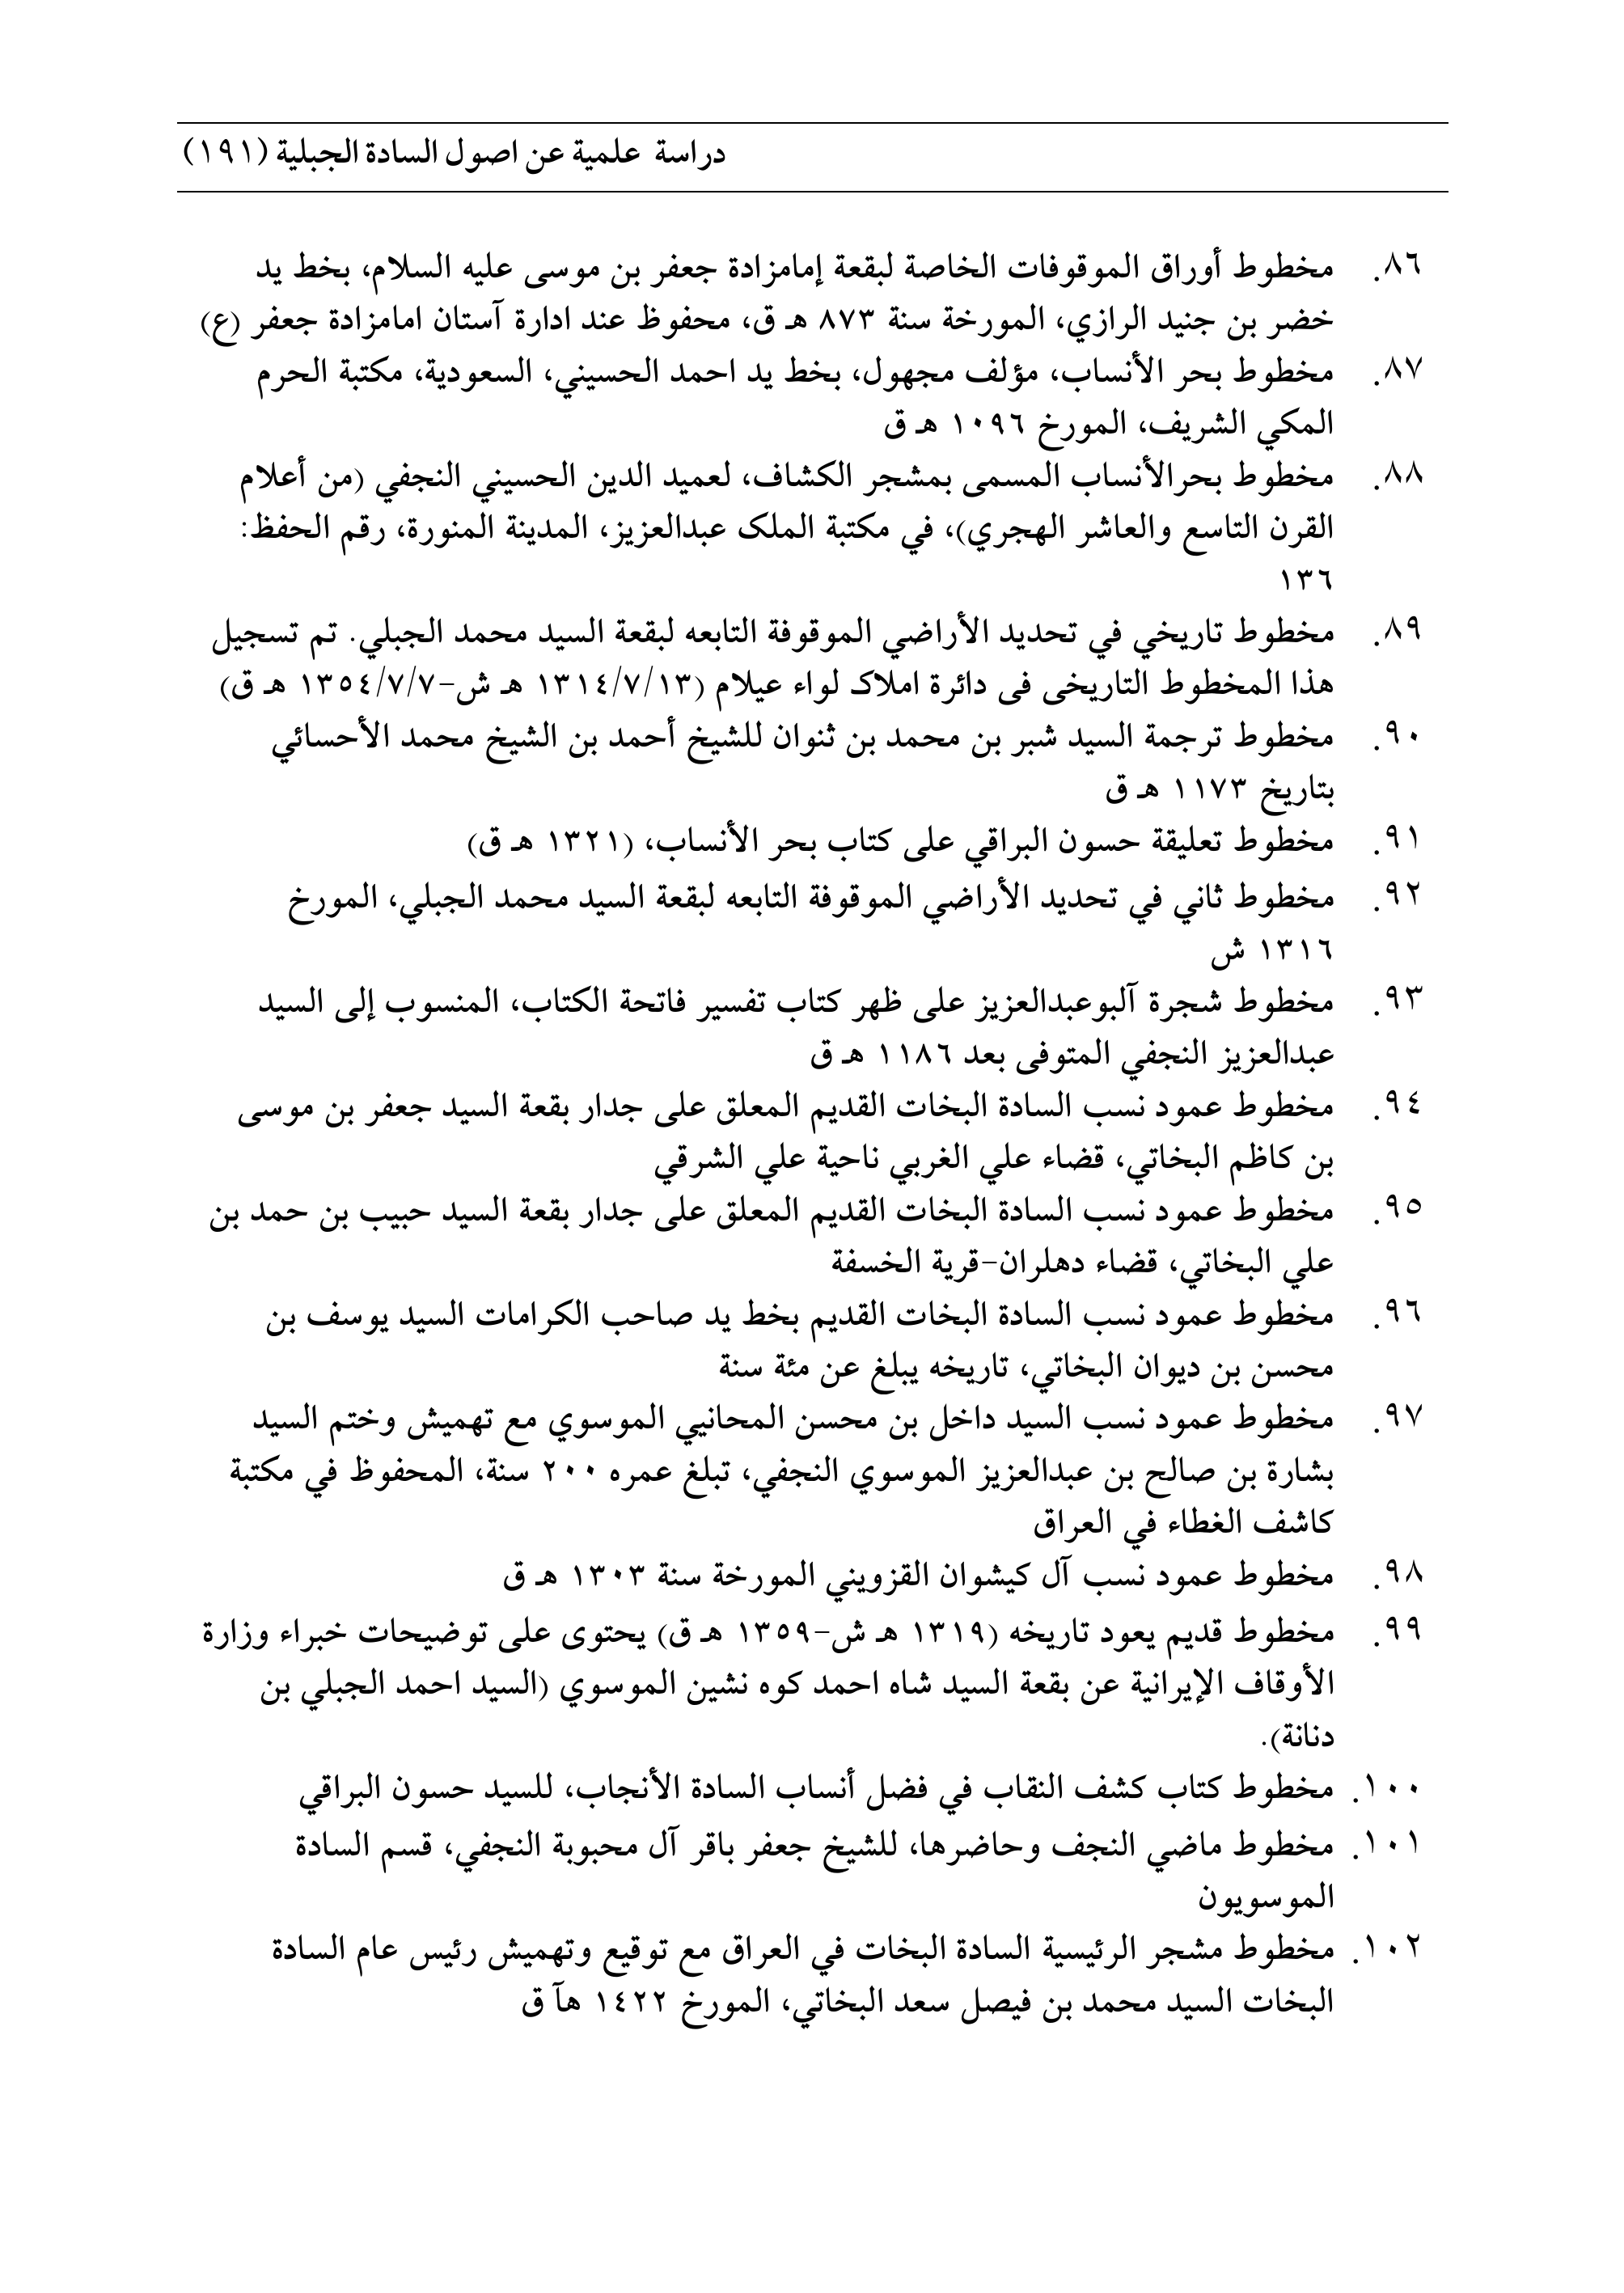 دراسة علمية عن اصول السادة الجبلية (١٩١)
٨٦. مخطوط أوراق الموقوفات الخاصة لبقعة إمامزادة جعفر بن موسى عليه السلام، بخط يد
خضر بن جنيد الرازي، المورخة سنة ٨٧٣ هـ ق، محفوظ عند ادارة آستان امامزادة جعفر (ع)
٨٧. مخطوط بحر الأنساب، مؤلف مجهول، بخط يد احمد الحسيني، السعودية، مكتبة الحرم
المكي الشريف، المورخ ١٠٩٦ هـ ق
٨٨. مخطوط بحرالأنساب المسمى بمشجر الكشاف، لعميد الدين الحسيني النجفي (من أعلام
القرن التاسع والعاشر الهجري)، في مكتبة الملک عبدالعزيز، المدينة المنورة، رقم الحفظ:
١٣٦
٨٩. مخطوط تاريخي في تحديد الأراضي الموقوفة التابعه لبقعة السيد محمد الجبلي. تم تسجيل
هذا المخطوط التاريخى فى دائرة املاک لواء عيلام (١٣١٤/٧/١٣ هـ ش-١٣٥٤/٧/٧ هـ ق)
٩٠. مخطوط ترجمة السيد شبر بن محمد بن ثنوان للشيخ أحمد بن الشيخ محمد الأحسائي
بتاريخ ١١٧٣ هـ ق
٩١. مخطوط تعليقة حسون البراقي على كتاب بحر الأنساب، (١٣٢١ هـ ق)
٩٢. مخطوط ثاني في تحديد الأراضي الموقوفة التابعه لبقعة السيد محمد الجبلي، المورخ
١٣١٦ ش
٩٣. مخطوط شجرة آلبوعبدالعزيز على ظهر كتاب تفسير فاتحة الكتاب، المنسوب إلى السيد
عبدالعزيز النجفي المتوفى بعد ١١٨٦ هـ ق
٩٤. مخطوط عمود نسب السادة البخات القديم المعلق على جدار بقعة السيد جعفر بن موسى
بن كاظم البخاتي، قضاء علي الغربي ناحية علي الشرقي
٩٥. مخطوط عمود نسب السادة البخات القديم المعلق على جدار بقعة السيد حبيب بن حمد بن
علي البخاتي، قضاء دهلران-قرية الخسفة
٩٦. مخطوط عمود نسب السادة البخات القديم بخط يد صاحب الكرامات السيد يوسف بن
محسن بن ديوان البخاتي، تاريخه يبلغ عن مئة سنة
٩٧. مخطوط عمود نسب السيد داخل بن محسن المحانيي الموسوي مع تهميش وختم السيد
بشارة بن صالح بن عبدالعزيز الموسوي النجفي، تبلغ عمره ٢٠٠ سنة، المحفوظ في مكتبة
كاشف الغطاء في العراق
٩٨. مخطوط عمود نسب آل كيشوان القزويني المورخة سنة ١٣٠٣ هـ ق
٩٩. مخطوط قديم يعود تاريخه (١٣١٩ هـ ش-١٣٥٩ هـ ق) يحتوى على توضيحات خبراء وزارة
الأوقاف الإيرانية عن بقعة السيد شاه احمد كوه نشين الموسوي (السيد احمد الجبلي بن
دنانة).
١٠٠. مخطوط كتاب كشف النقاب في فضل أنساب السادة الأنجاب، للسيد حسون البراقي
١٠١. مخطوط ماضي النجف وحاضرها، للشيخ جعفر باقر آل محبوبة النجفي، قسم السادة
الموسويون
١٠٢. مخطوط مشجر الرئيسية السادة البخات في العراق مع توقيع وتهميش رئيس عام السادة
البخات السيد محمد بن فيصل سعد البخاتي، المورخ ١٤٢٢ هآ ق